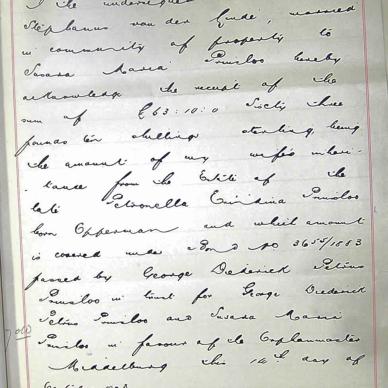 I the undersigned
Stephanus van der Linde, married
in community of property to
Susara Maria Prinsloo hereby
acknowledge the receipt of the
sum of £63:10:0 Sixty three
pounds ten shillings sterling, being
the amount of my wife's inheri-
tance from the Estate of the
late Petronella Prinsloo
born Opperman and which amount
is covered under Bond No 3655/1883
passed by George Diederick Petrus
Prinsloo in trust for George Diederick
Petrus Prinsloo and Susara Maria
Prinsloo in favour of the Orphanmaster
Middelburg this 14th day of